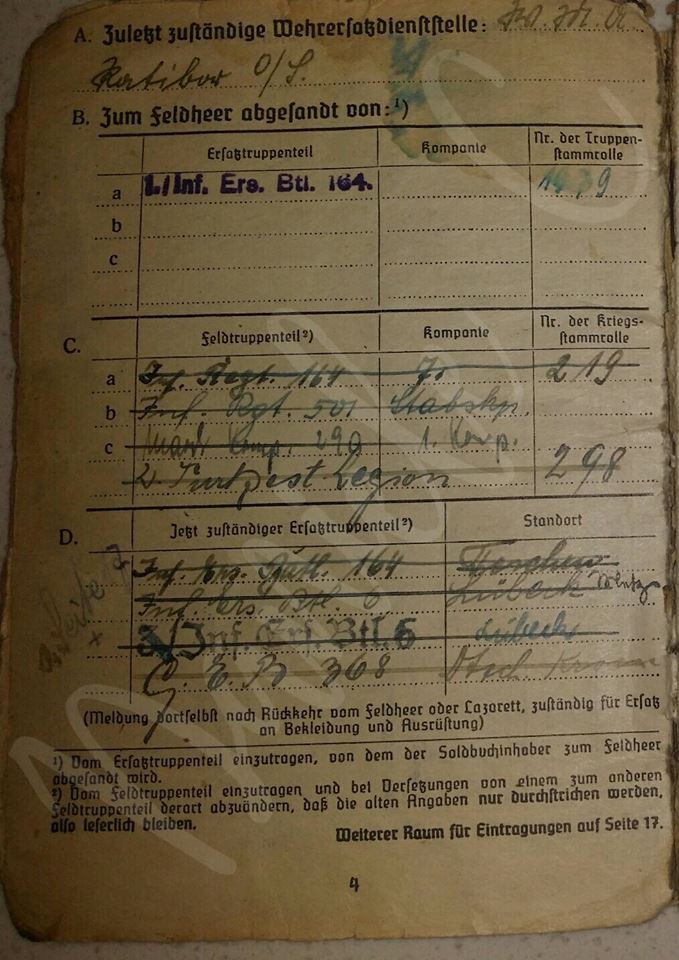 A. Zuletzt zuständige Wehrersatzdienststelle:
Ratibor O/S.
B. Zum Feldheer abgesandt von:¹)
Ersatztruppenteil Kompanie Nr. der Truppen-
stammrolle
a 1./Inf. Ers. Btl. 164.
b
c
C. Feldtruppenteil²) Kompanie Nr. der Kriegs-
stammrolle
a Inf. Regt. 164 7. 219
b Inf. Rgt. 501 Stabskp.
c Marsch Komp. 290 1. Komp.
Legion 298
D. Jetzt zuständiger Ersatztruppenteil²) Standort
Inf. Ers. Batl. 164
Inf. Ers. Btl. 6 Lübeck
3./Inf. Ers. Btl. 6 Lübeck
G. E. B. 368
(Meldung dortselbst nach Rückkehr vom Feldheer oder Lazarett, zuständig für Ersatz
an Bekleidung und Ausrüstung)
¹) Vom Ersatztruppenteil einzutragen, von dem der Soldbuchinhaber zum Feldheer
abgesandt wird.
²) Vom Feldtruppenteil einzutragen und bei Versetzungen von einem zum anderen
Feldtruppenteil derart abzuändern, daß die alten Angaben nur durchstrichen werden,
also leserlich bleiben.
Weiterer Raum für Eintragungen auf Seite 17.
4